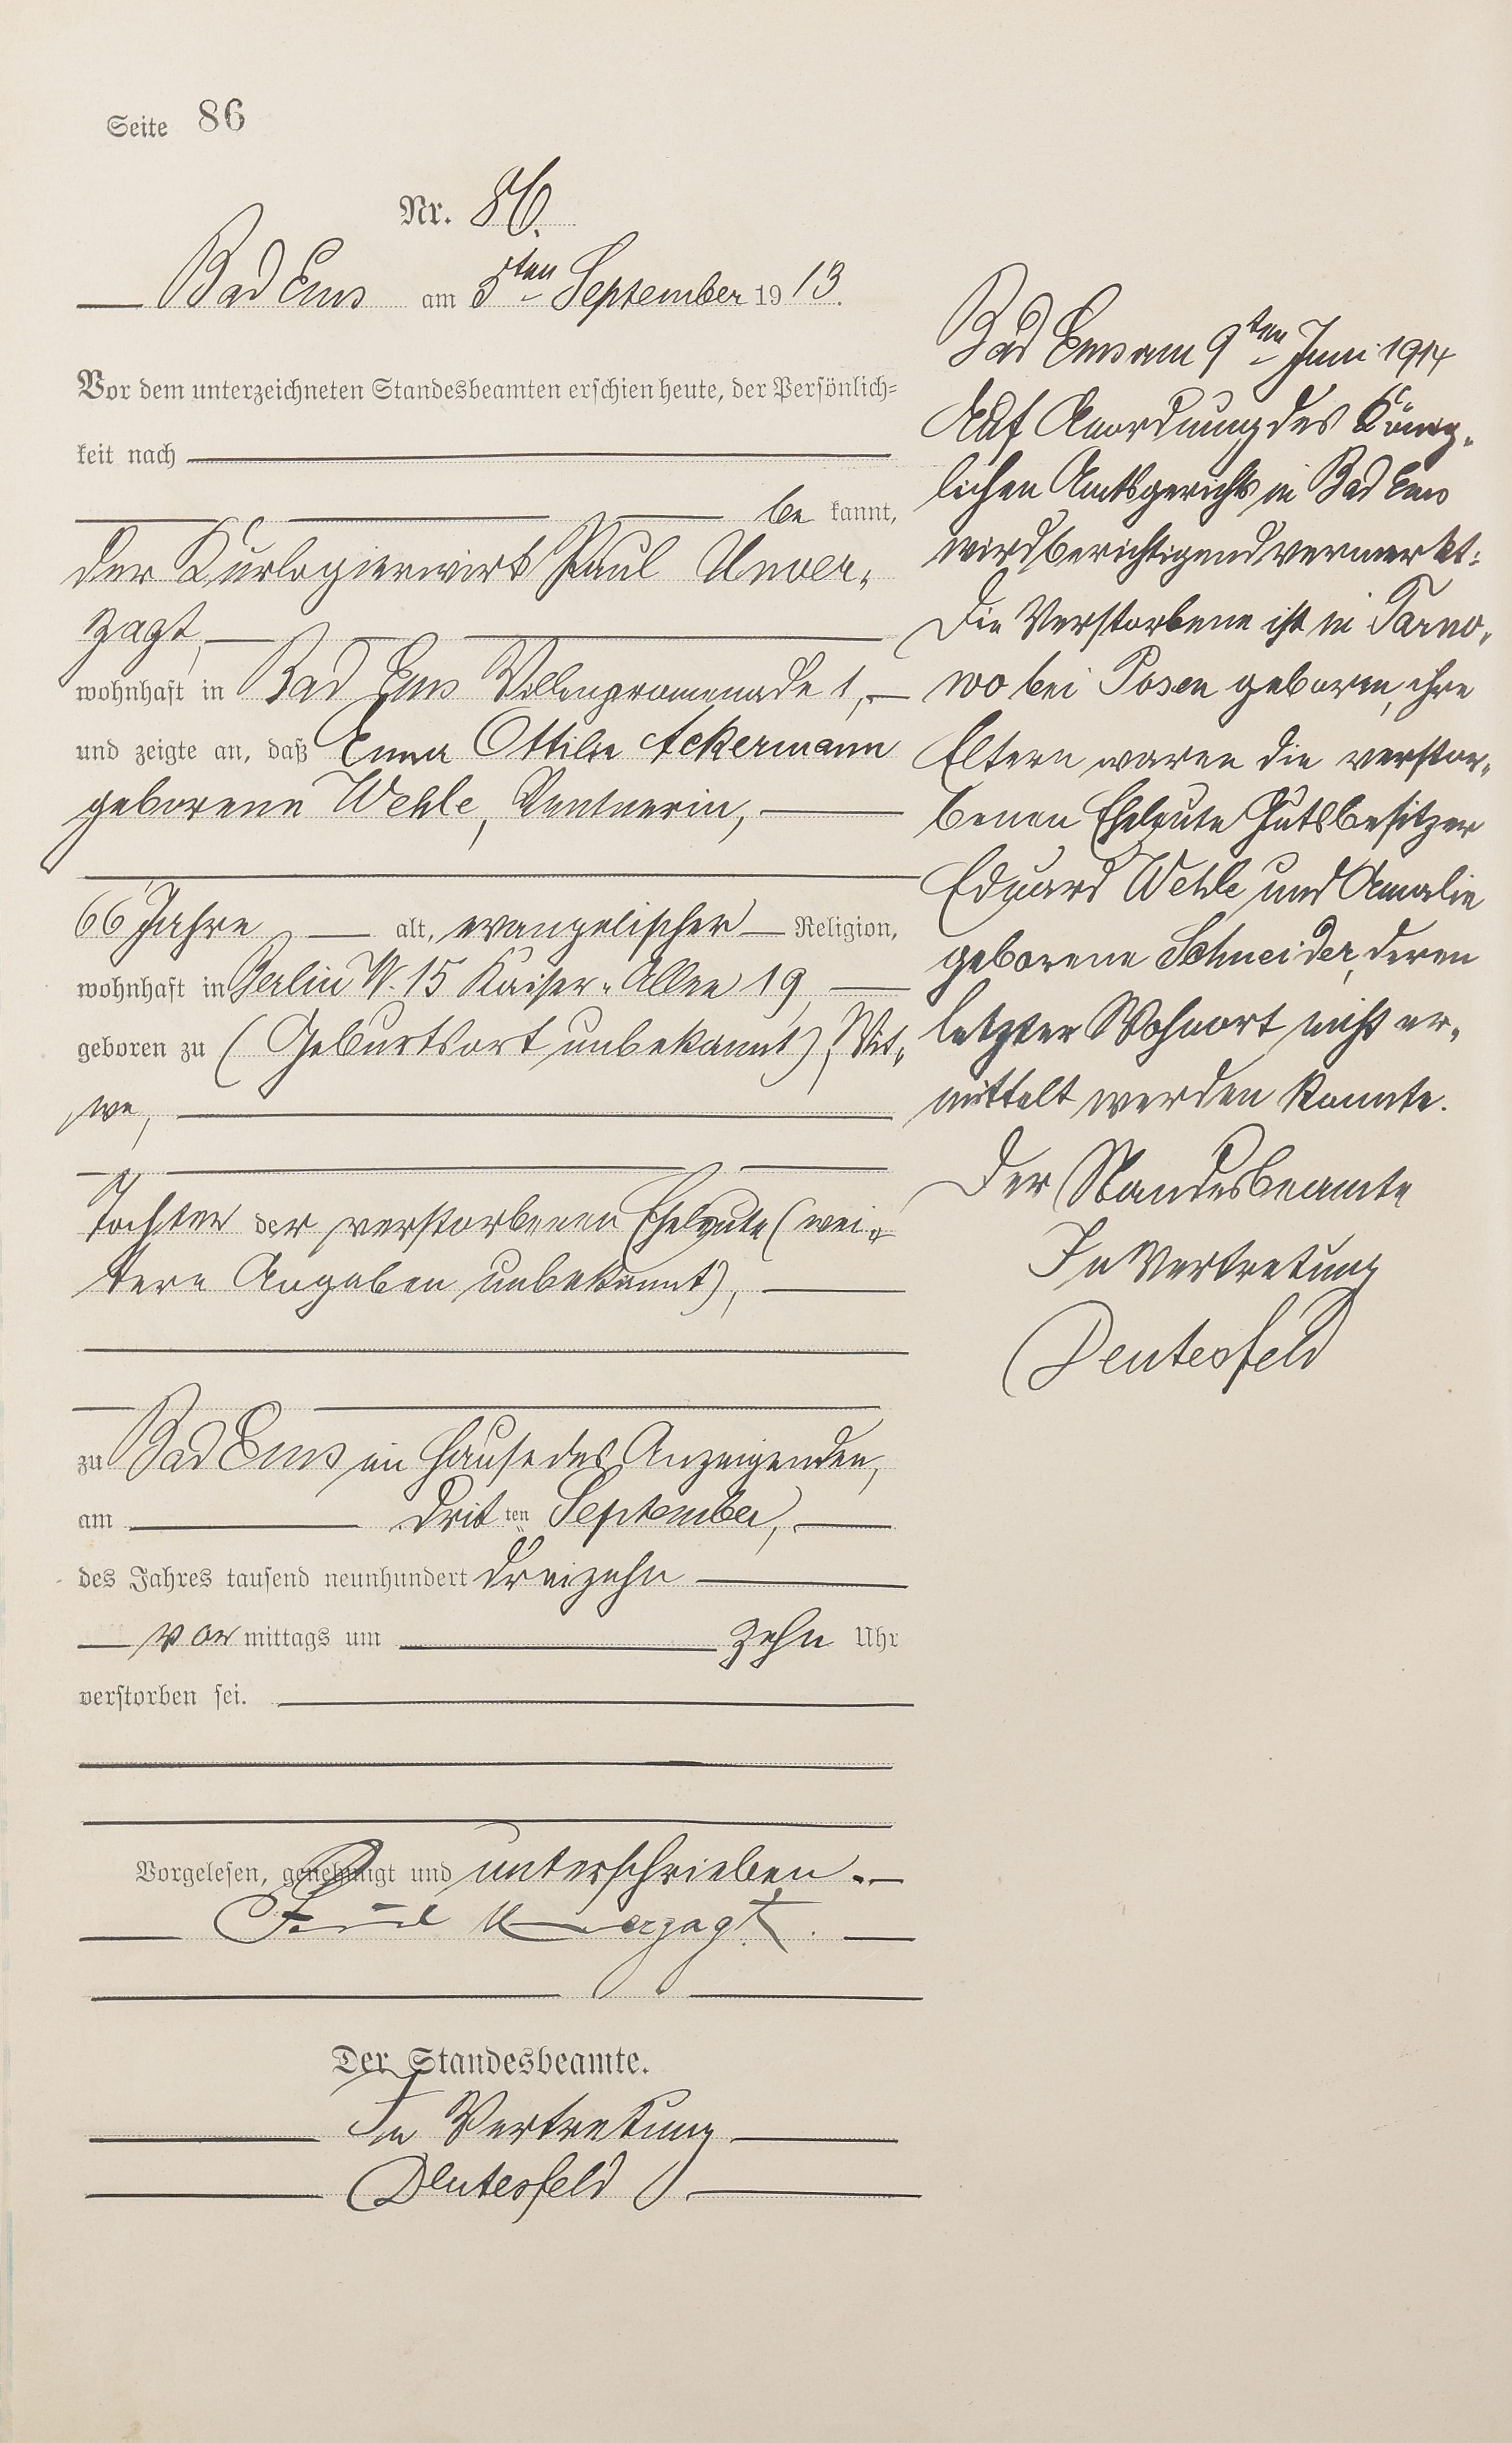 Seite 86
Nr. 86.
Bad Ems am 5ten September 1913.
Vor dem unterzeichneten Standesbeamten erschien heute, der Persönlich-
keit nach
be kannt,
der Kurlogierwirt Paul Unver-
zagt,
wohnhaft in Bad Ems Villenpromenade 1,
und zeigte an, daß Emma Ottilie Ackermann
geborene Wehle, Rentnerin,
66 Jahre alt, evangelischer Religion,
wohnhaft in Berlin W. 15 Kaiser-Allee 19,
geboren zu (Geburtsort unbekannt), Wit-
we,
Tochter der verstorbenen Eheleute (wei-
tere Angaben unbekannt),
zu Bad Ems im Hause des Anzeigenden,
am drit ten September,
des Jahres tausend neunhundert dreizehn
vor mittags um zehn Uhr
verstorben sei.
Vorgelesen, genehmigt und unterschrieben.
Paul Unverzagt.
Der Standesbeamte.
In Vertretung
Deutesfeld
Bad Ems am 9ten Juni 1914
Auf Anordnung des König-
lichen Amtsgerichts in Bad Ems
wird berichtigend vermerkt:
Die Verstorbene ist in Tarno-
wo bei Posen geboren, ihre
Eltern waren die verstor-
benen Eheleute Gutsbesitzer
Eduard Wehle und Amalie
geborene Schneider, deren
letzter Wohnort nicht er-
mittelt werden konnte.
Der Standesbeamte
In Vertretung
Deutesfeld